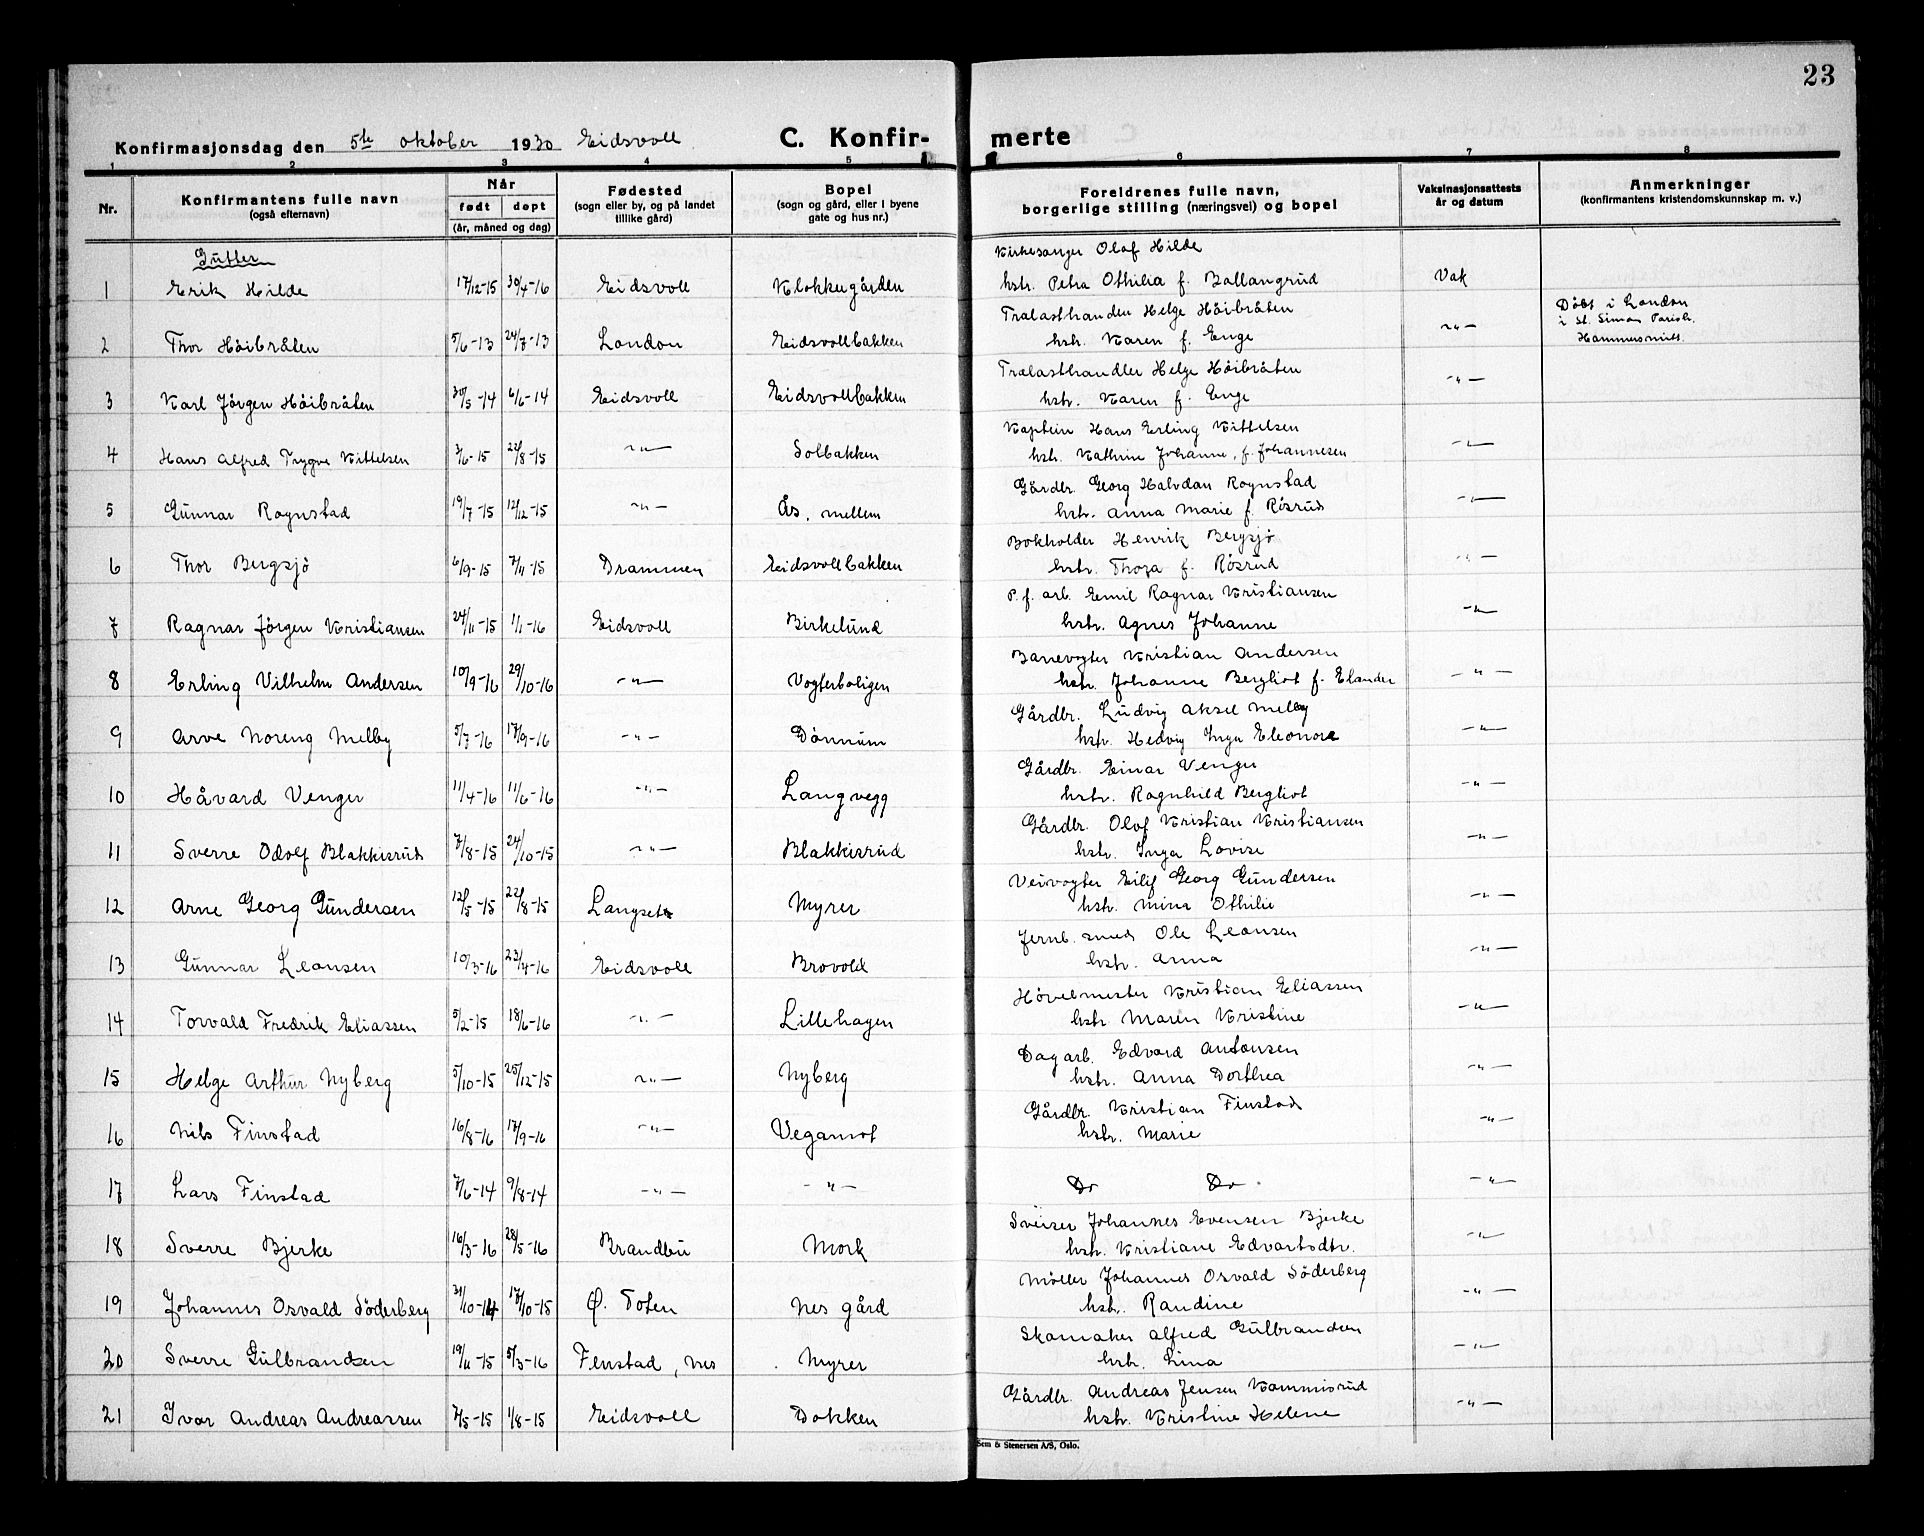 23
Konfirmasjonsdag den 5te oktober 1930 Eidsvoll C. Konfirmerte
1 2 3 4 5 6 7 8
Nr. Konfirmantens fulle navn (også efternavn) Når født døpt (år, måned og dag) Fødested (sogn eller by, og på landet tillike gård) Bopel (sogn og gård, eller i byene gate og hus nr.) Foreldrenes fulle navn, borgerlige stilling (næringsvei) og bopel Vaksinasjonsattests år og datum Anmerkninger (konfirmantens kristendomskunnskap m. v.)
Gutter
Kirkesanger Olaf Hilde
1 Erik Hilde 17/12-15 30/4-16 Eidsvoll Klokkegården hstr. Petra Othilia f. Ballangrud Vak
Trælasthandler Helge Höibråten Döbt i London
i St. Simon Parish.
2 Thor Höibråten 5/6-13 24/7-13 London Eidsvollbakken hstr. Karen f. Enge -"- Hammersmith.
Trælasthandler Helge Höibråten
3 Karl Jörgen Höibråten 30/5-14 6/6-14 Eidsvoll Eidsvollbakken hstr. Karen f. Enge -"-
Kaptein Hans Erling Kittelsen
4 Hans Alfred Trygve Kittelsen 3/6-15 22/8-15 -"- Solbakken hstr. Kathrine Johanne, f. Johannesen -"-
Gårdbr. Georg Halvdan Rognstad
5 Gunnar Rognstad 19/7-15 12/12-15 -"- Ås, mellem hstr. Anna Marie f. Rösrud -"-
Bokholder Henrik Bergsjö
6 Thor Bergsjö 6/9-15 7/11-15 Drammen Eidsvollbakken hstr. Thora f. Rösrud -"-
P. f. arb. Emil Ragnar Kristiansen
7 Ragnar Jörgen Kristiansen 24/11-15 1/1-16 Eidsvoll Birkelund hstr. Agnes Johanne -"-
Banevogter Kristian Andersen
8 Erling Vilhelm Andersen 10/9-16 29/10-16 -"- Vogterboligen hstr. Johanne Bergliot f. Elander -"-
Gårdbr. Ludvig Aksel Melby
9 Arve Noreng Melby 5/7-16 17/9-16 -"- Dönnum hstr. Hedvig Inga Eleonora -"-
Gårdbr. Einar Venger
10 Håvard Venger 11/4-16 11/6-16 -"- Langvegg hstr. Ragnhild Bergliot -"-
Gårdbr. Olof Kristian Kristiansen
11 Sverre Odolf Blakkisrud 7/8-15 24/10-15 -"- Blakkisrud hstr. Inga Lovise -"-
Veivogter Eilif Georg Gundersen
12 Arne Georg Gundersen 12/5-15 22/8-15 Langset Myrer hstr. Mina Othilie -"-
Jernb. smed Ole Leonsen
13 Gunnar Leonsen 10/3-16 23/4-16 Eidsvoll Brovold hstr. Anna -"-
Hövelmester Kristian Eliassen
14 Torvald Fredrik Eliassen 5/2-15 18/6-16 -"- Lillehagen hstr. Maren Kristine -"-
Dagarb. Edvard Antonsen
15 Helge Arthur Nyberg 5/10-15 25/12-15 -"- Nyberg hstr. Anna Dorthea -"-
Gårdbr. Kristian Finstad
16 Nils Finstad 16/8-16 17/9-16 -"- Vegamot hstr. Marie -"-
17 Lars Finstad 7/6-14 9/8-14 -"- -"- Do Do -"-
Sveiser Johannes Evensen Bjerke
18 Sverre Bjerke 16/3-16 28/5-16 Brandbu Mork hstr. Kristiane Edvartsdtr. -"-
Möller Johannes Osvald Söderberg
19 Johannes Osvald Söderberg 31/10-14 17/10-15 Ø. Toten Nes gård hstr. Randine -"-
Skomaker Alfred Gulbrandsen
20 Sverre Gulbrandsen 19/11-15 5/3-16 Fenstad, Nes Myrer hstr. Lina -"-
Gårdbr. Andreas Jensen Kammisrud
21 Ivar Andreas Andreassen 7/5-15 1/8-15 Eidsvoll Dokken hstr. Kristine Helene -"-
Sem & Stenersen A/S, Oslo.